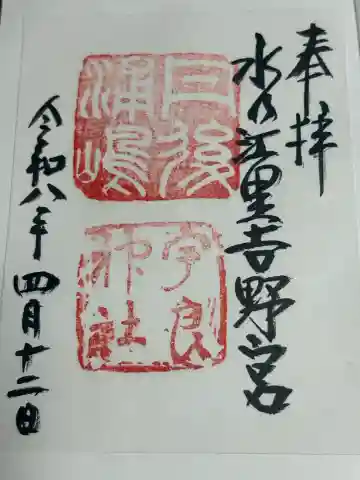 奉拝
水乃江里吉野宮
丹後
浦嶋
宇良
神社
令和八年四月十二日